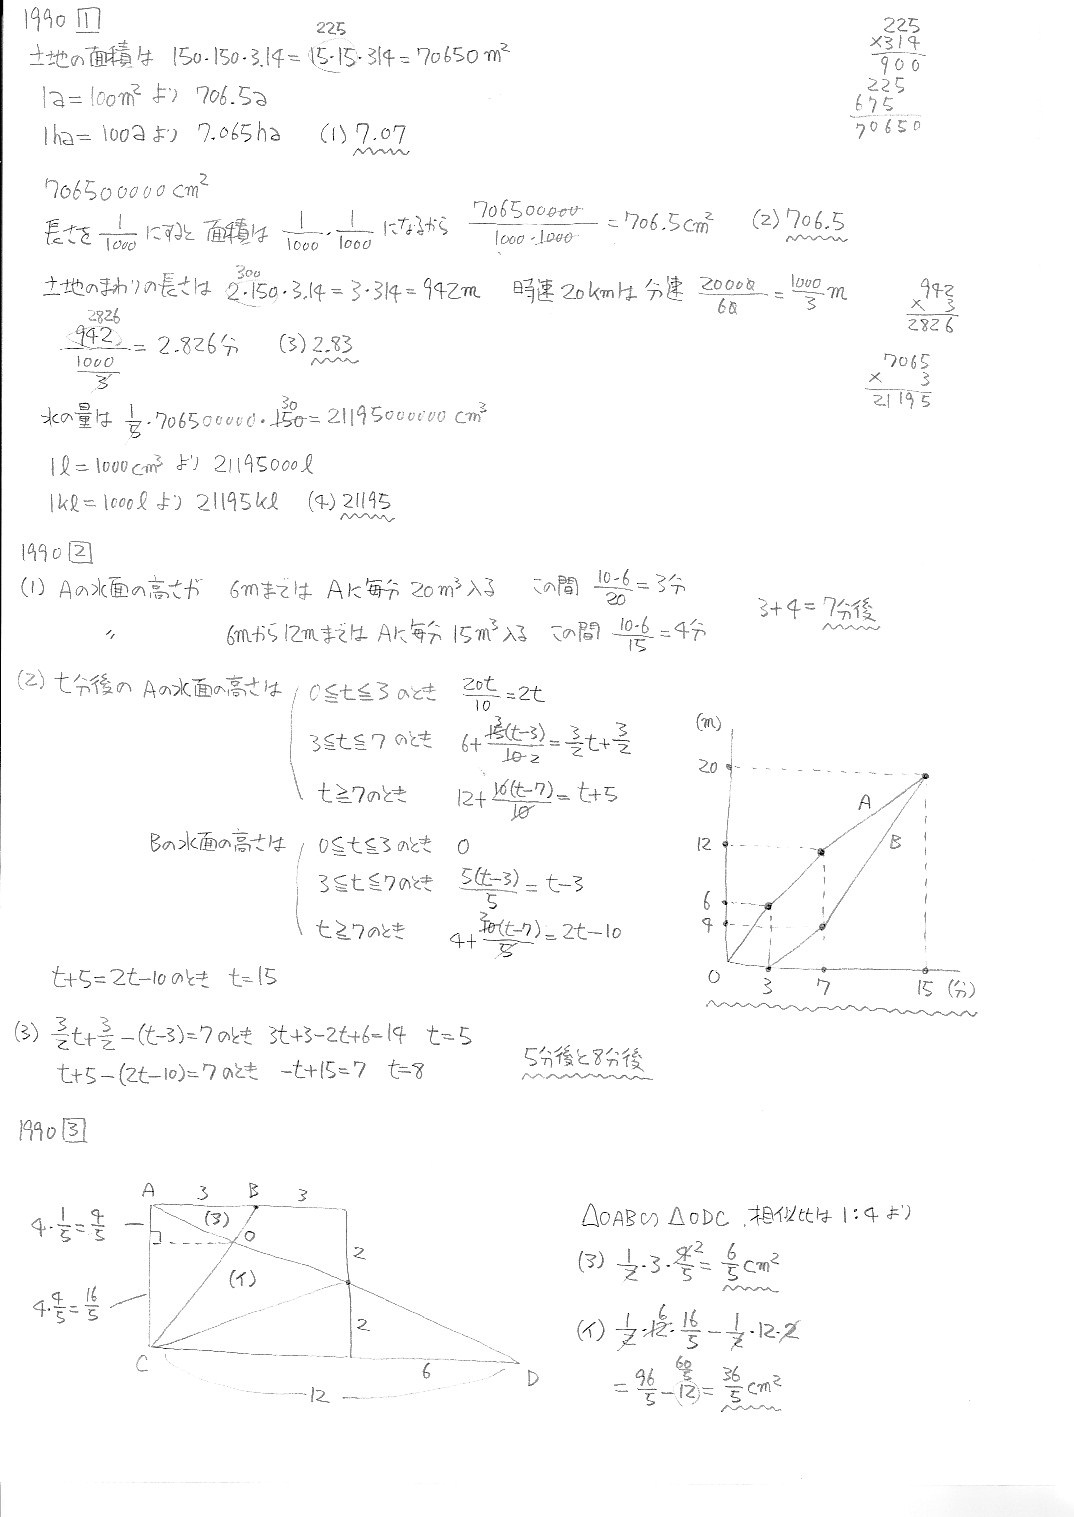 1990 1
土地の面積は 150・150・3.14=15・15・314=70650m²
225
225
×314
900
225
675
70650
1a=100m²より 706.5a
1ha=100aより 7.065ha (1)7.07
706500000cm²
長さを1/1000にすると面積は 1/1000・1/1000になるから 706500000/1000・1000=706.5cm² (2)706.5
土地のまわりの長さは 2・150・3.14=3・314=942m 時速20kmは分速 20000/60=1000/3m
300
942
× 3
2826
942/(1000/3)=2.826分 (3)2.83
2826
7065
× 3
21195
水の量は 1/5・706500000・150=21195000000cm³
30
1l=1000cm³より 21195000l
1kl=1000lより 21195kl (4)21195
1990 2
(1) Aの水面の高さが 6mまでは Aに毎分20m³入る この間 10・6/20=3分
〃 6mから12mまでは Aに毎分15m³入る この間 10・6/15=4分
3+4=7分後
(2) t分後の Aの水面の高さは 0≦t≦3のとき 20t/10=2t
3≦t≦7のとき 6+15(t-3)/10=3/2t+3/2
3
2
t≧7のとき 12+10(t-7)/10=t+5
Bの水面の高さは 0≦t≦3のとき 0
3≦t≦7のとき 5(t-3)/5=t-3
t≧7のとき 4+10(t-7)/5=2t-10
t+5=2t-10のとき t=15
(m)
20
12
6
4
0
3
7
15 (分)
A
B
(3) 3/2t+3/2-(t-3)=7のとき 3t+3-2t+6=14 t=5
t+5-(2t-10)=7のとき -t+15=7 t=8
5分後と8分後
1990 3
A 3 B 3
4・1/5=4/5
(ア)
O
2
(イ)
4・4/5=16/5
2
C
6
D
12
△OAB∽△ODC 相似比は1:4より
(ア) 1/2・3・4/5=6/5cm²
2
(イ) 1/2・12・16/5-1/2・12・2
6
=96/5-12=36/5cm²
60/5